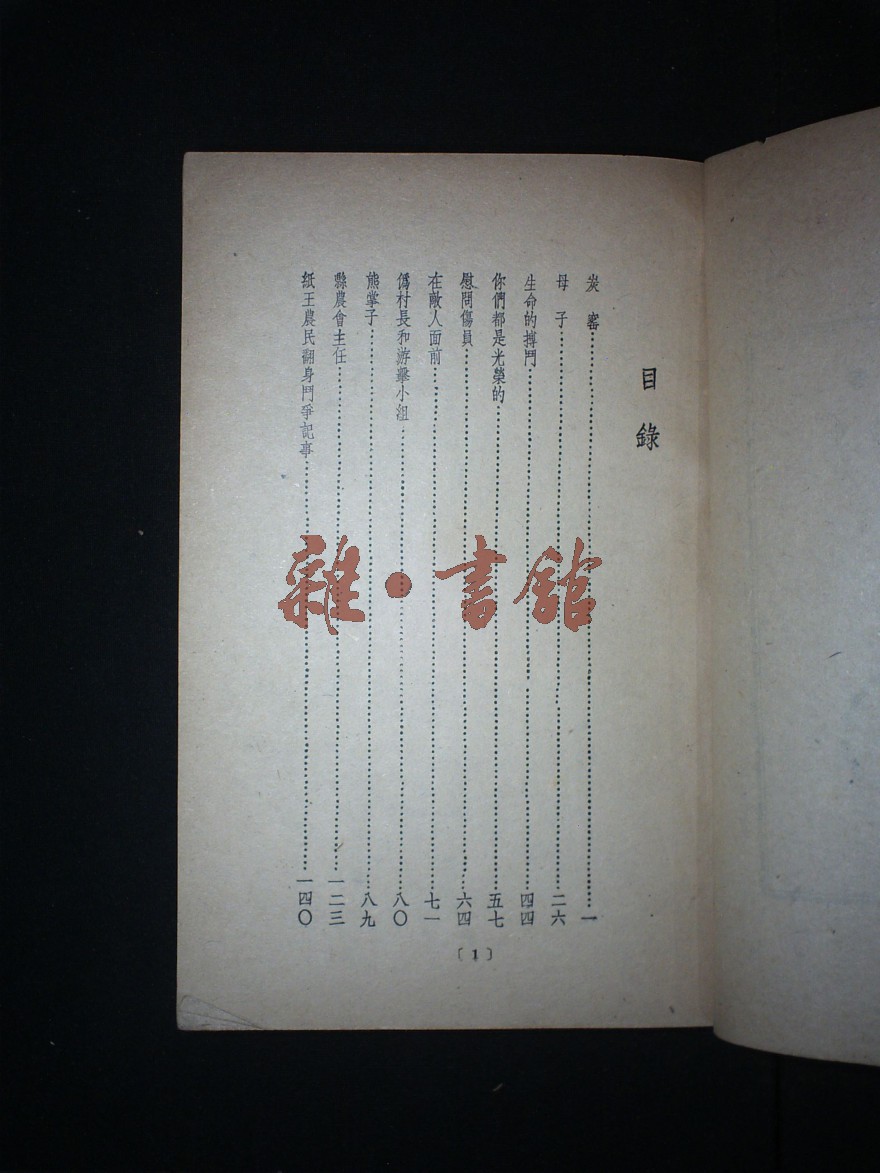 目錄
炭窰…………一
母子…………二六
生命的搏鬥…………四四
你們都是光榮的…………五七
慰問傷員…………六四
在敵人面前…………七一
僞村長和游擊小組…………八〇
熊掌子…………八九
縣農會主任…………一二三
紙王農民翻身鬥爭記事…………一四〇
〔1〕
雜·書館